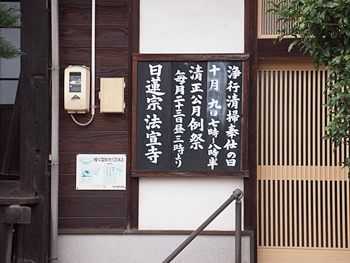 浄行清掃奉仕の日
十月 九日七時〜八時半
清正公月例祭
毎月二十三日昼三時より
日蓮宗 法宣寺